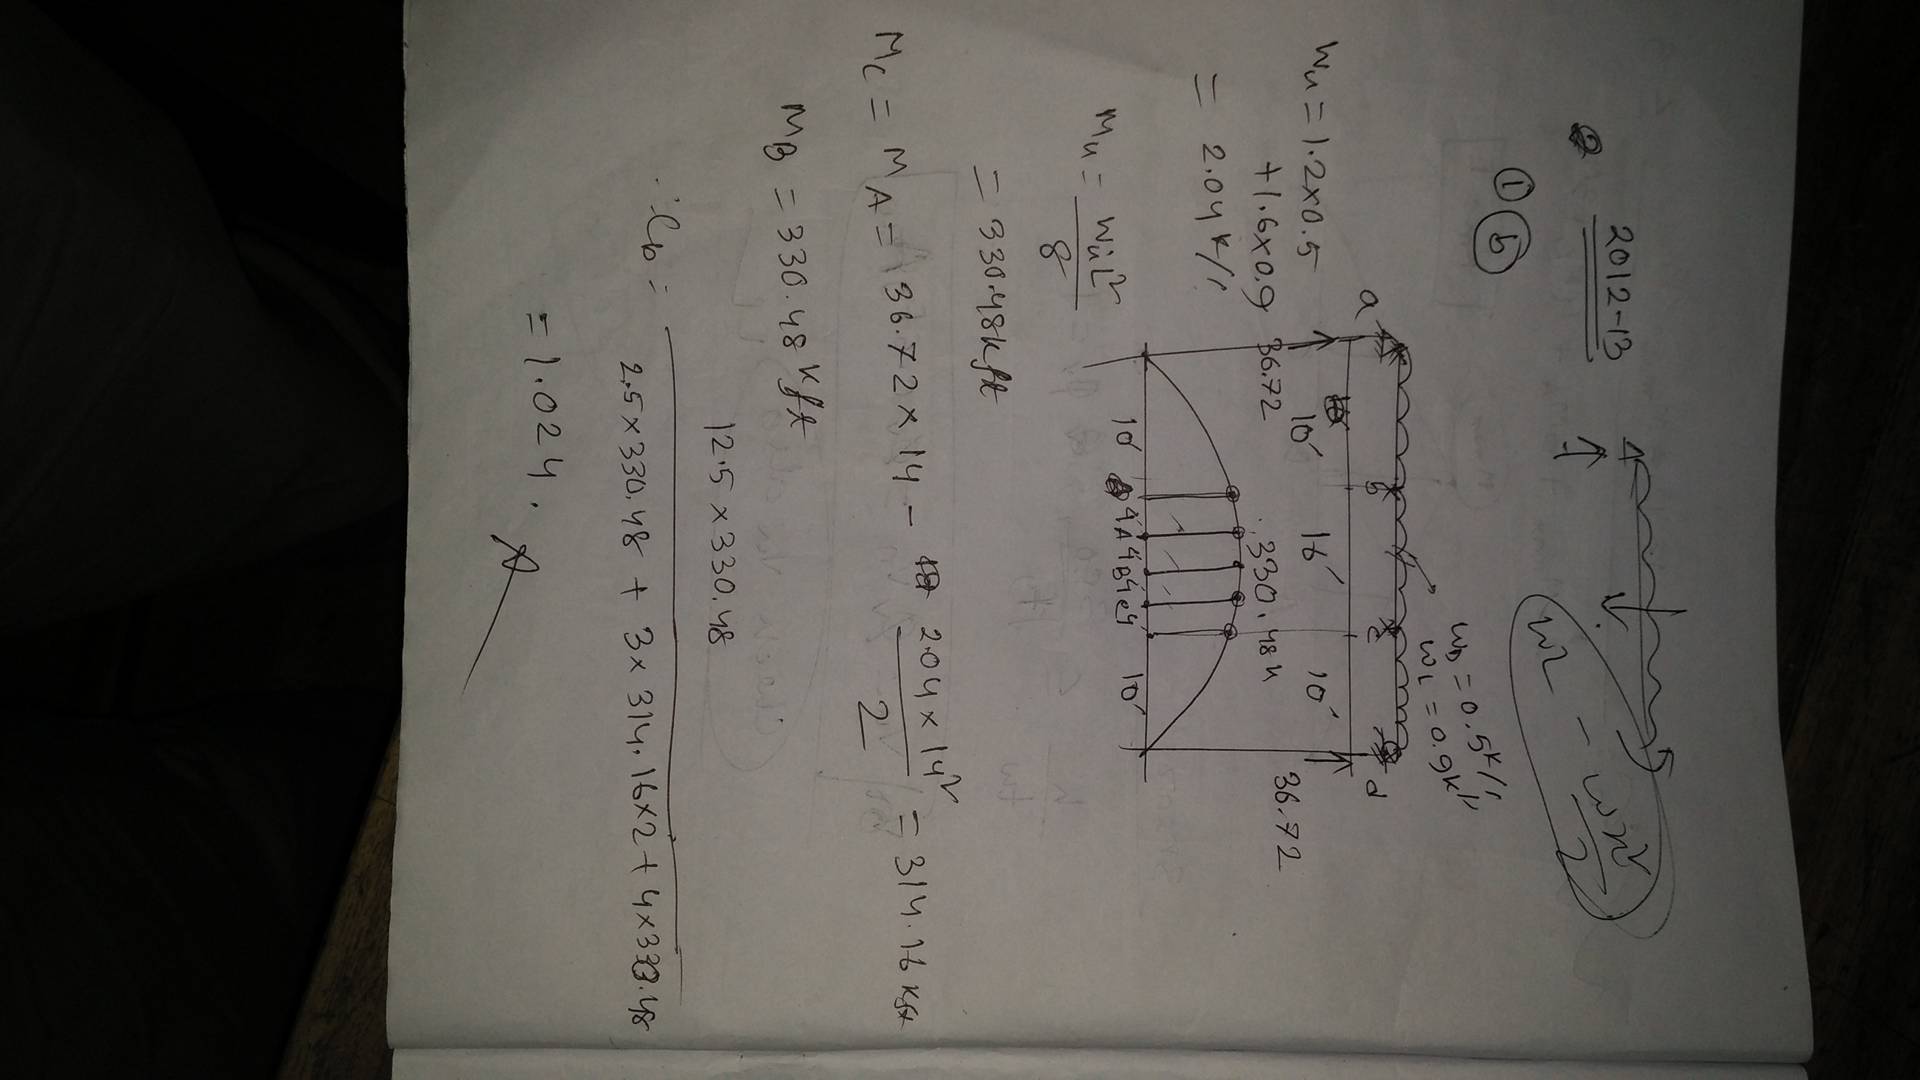 2012-13
① ⓑ
wx - wx²/2
W_D = 0.5 k/'
W_L = 0.9 k/'
a b c d
W_u = 1.2×0.5
+1.6×0.9
= 2.04 k/'
10' 16' 10'
36.72 36.72
330.48 k
10' 4' A 4' B 4' c 4' 10'
M_u = W_u l²/8
= 330.48 kft
M_C = M_A = 36.72 × 14 - 2.04 × 14²/2 = 314.16 kft
M_B = 330.48 kft
∴ C_b = 12.5 × 330.48 / 2.5 × 330.48 + 3 × 314.16 × 2 + 4 × 330.48
= 1.024.